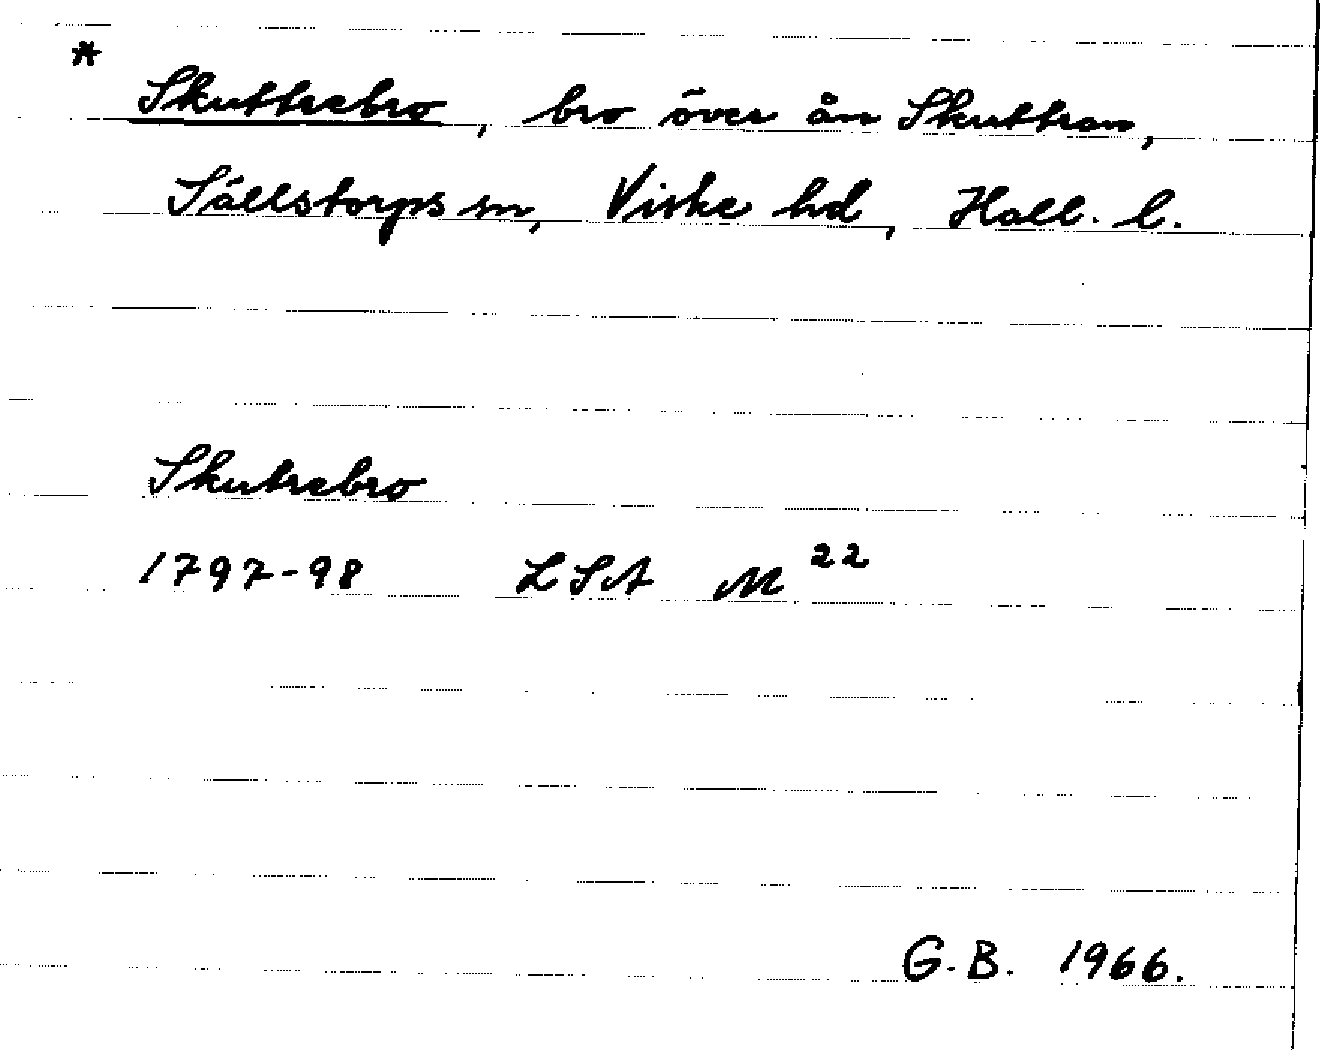 *
Skuttrebro, bro över ån Skuttran,
Sällstorps sn, Viske hd, Hall. l.
Skutrebro
1797-98 LSA M 22
G.B. 1966.